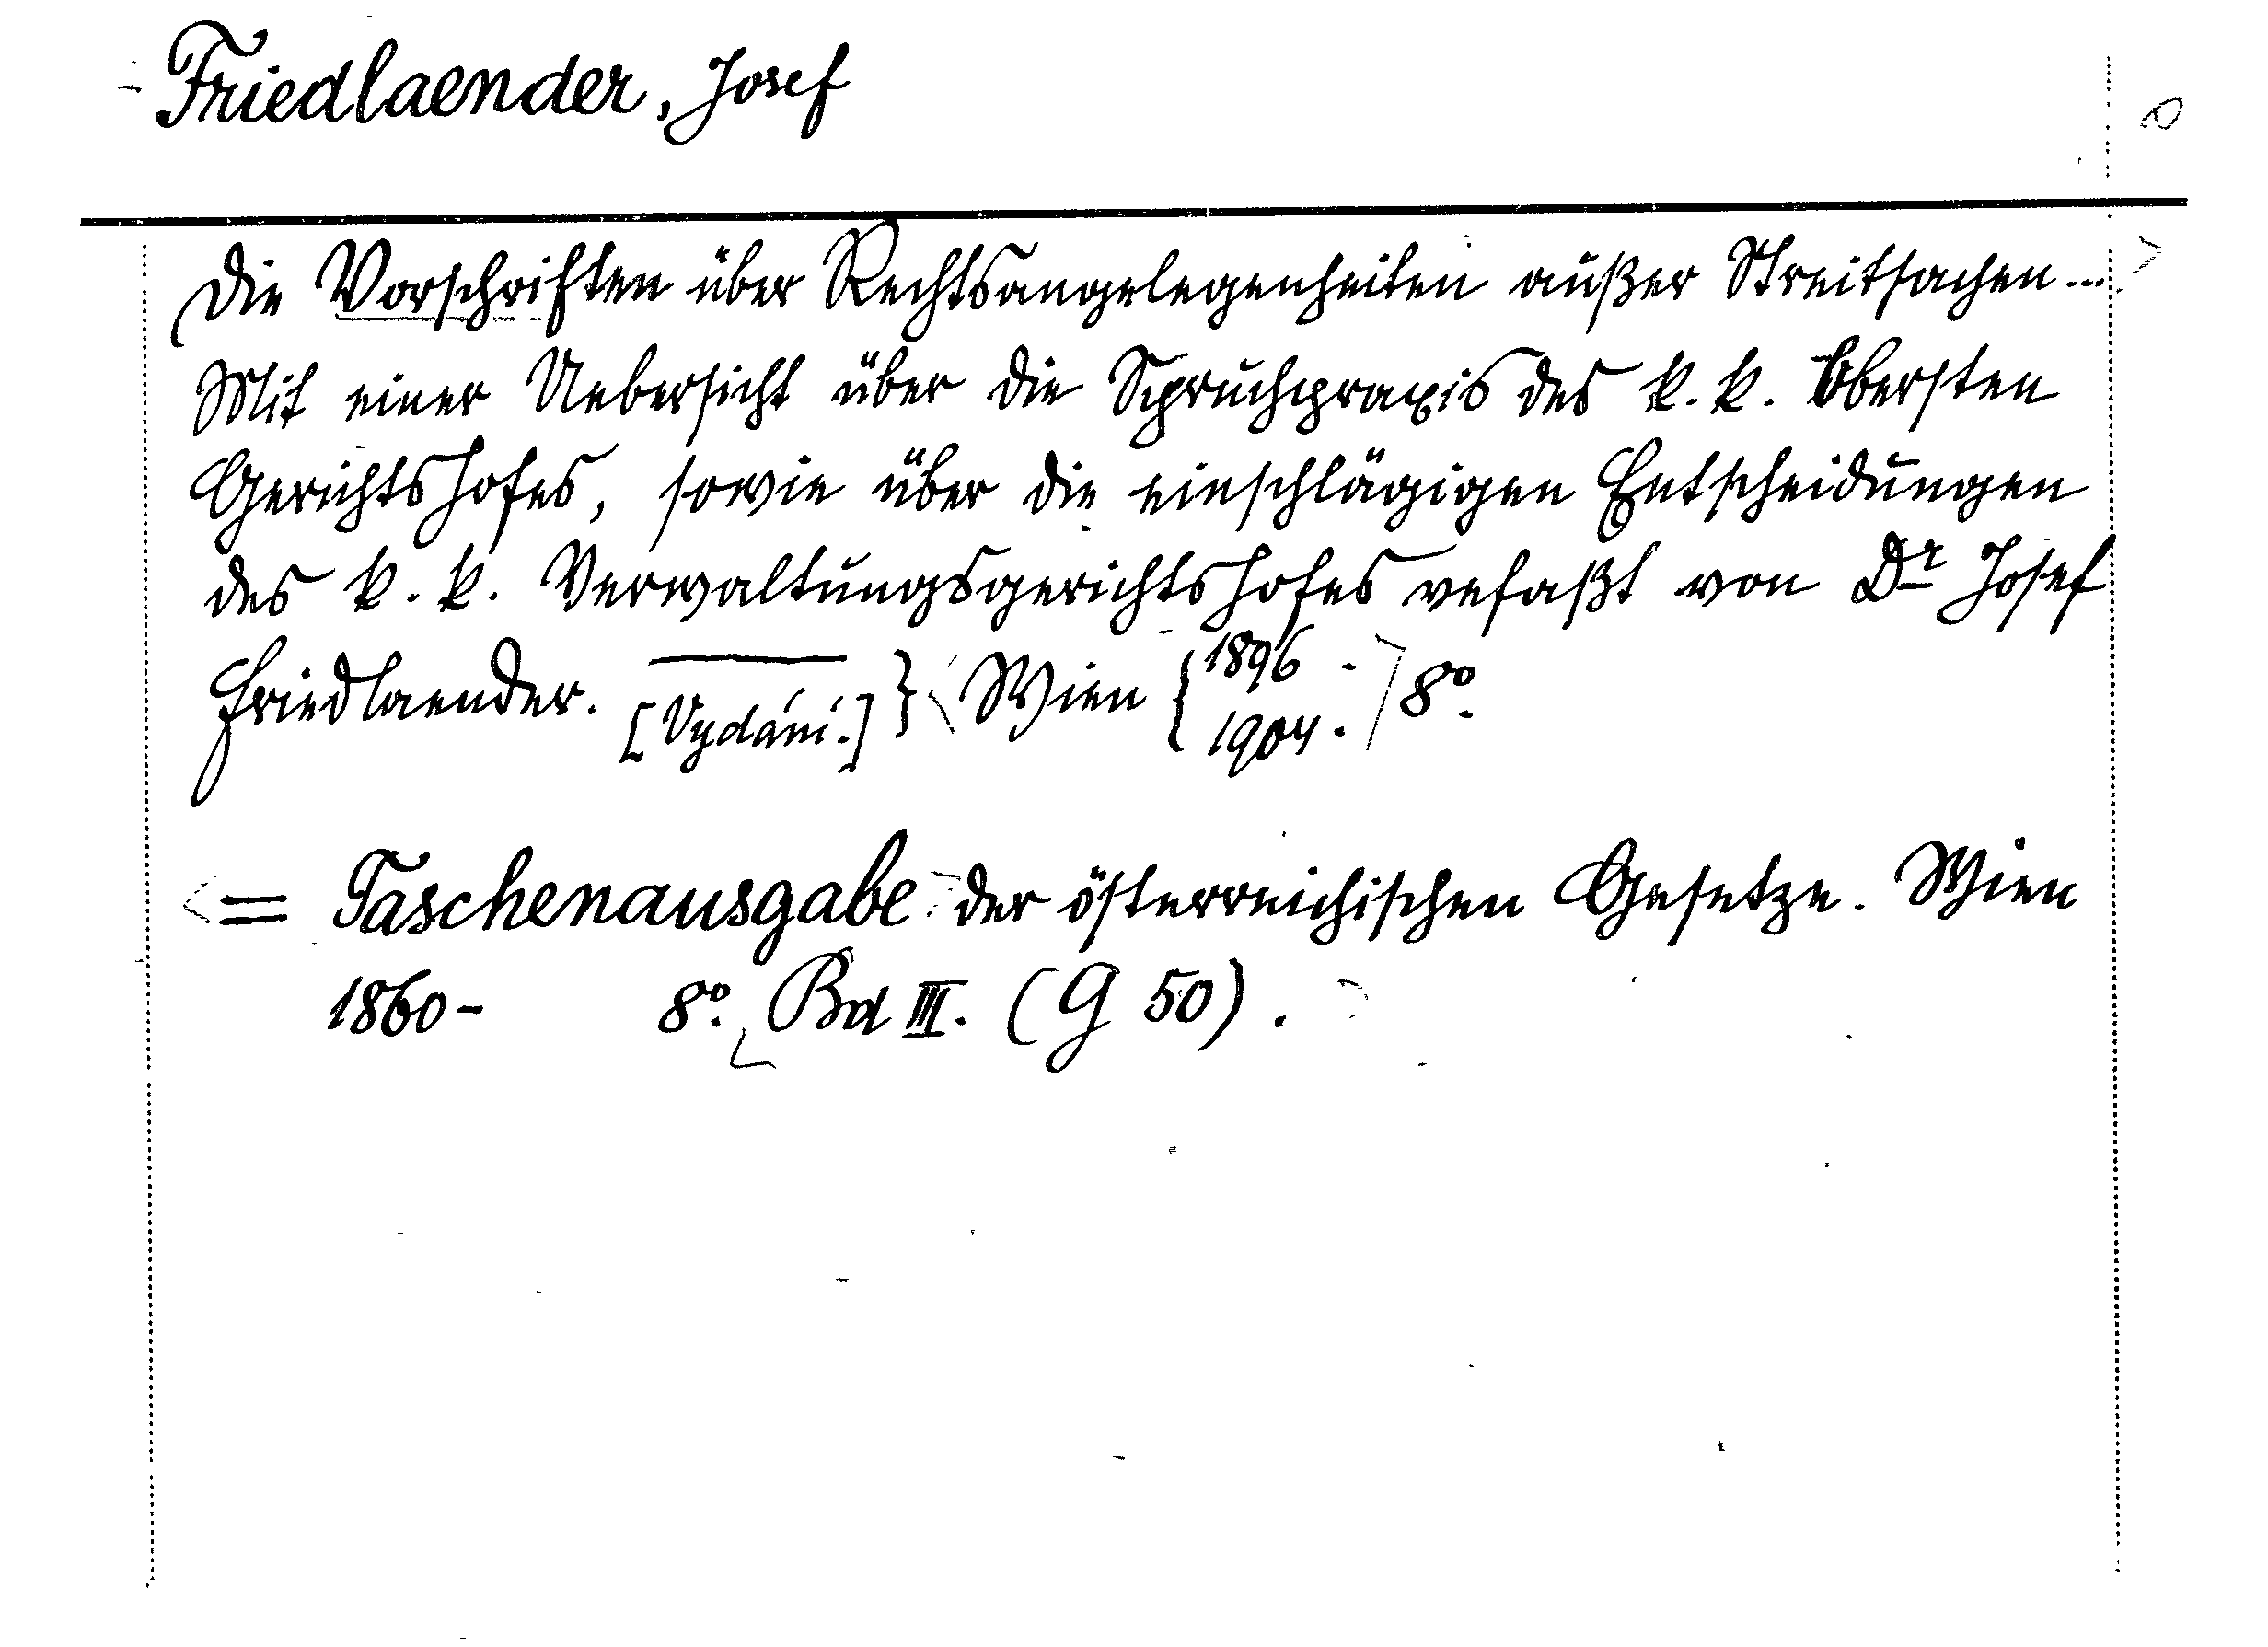 Friedlaender, Josef
Die Vorschriften über Rechtsangelegenheiten außer Streitsachen...
Mit einer Uebersicht über die Spruchpraxis des k. k. Obersten
Gerichtshofes, sowie über die einschlägigen Entscheidungen
des k. k. Verwaltungsgerichtshofes vefaßt von Dr Josef
Friedlaender. [Vydání.] } Wien { 1896. 1904. 8º.
= Taschenausgabe der österreichischen Gesetze. Wien
1860- 8º. Bd III. (G 50).